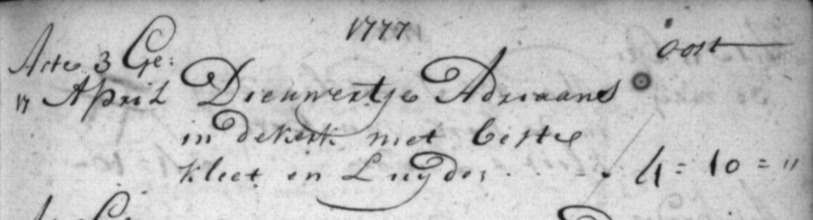 1777
oost
Acte 3 Ge:
17 April Dieuwertje Adriaans
in de kerk met beste
kleet en Luyder . . . 4 = 10 = "